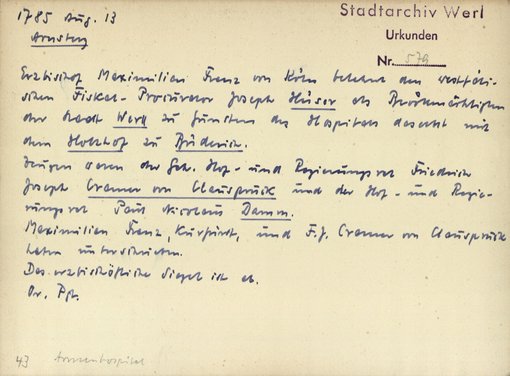 1785 Aug. 13
Stadtarchiv Werl
Arnsberg
Urkunden
Nr. 579
Erzbischof Maximilian Franz von Köln belehnt den westfäli-
schen Fiskal-Procurator Joseph Hüser als Bevollmächtigten
der Stadt Werl zu Gunsten des Hospitals daselbst mit
dem Holzhof zu Büderich.
Zeugen waren der Geh. Hof- und Regierungsrat Friedrich
Joseph Cramer von Clauspruck und der Hof- und Regie-
rungsrat Paul Nicolaus Damm.
Maximilian Franz, Kurfürst, und F.J. Cramer von Clauspruck
haben unterschrieben.
Das erzbischöfliche Siegel ist ab.
Or. Pgt.
43 Armenhospital